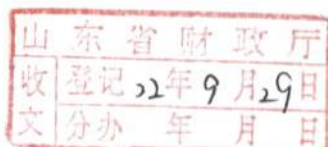 山东省财政厅
收文 登记 22年9月29日
分办 年 月 日